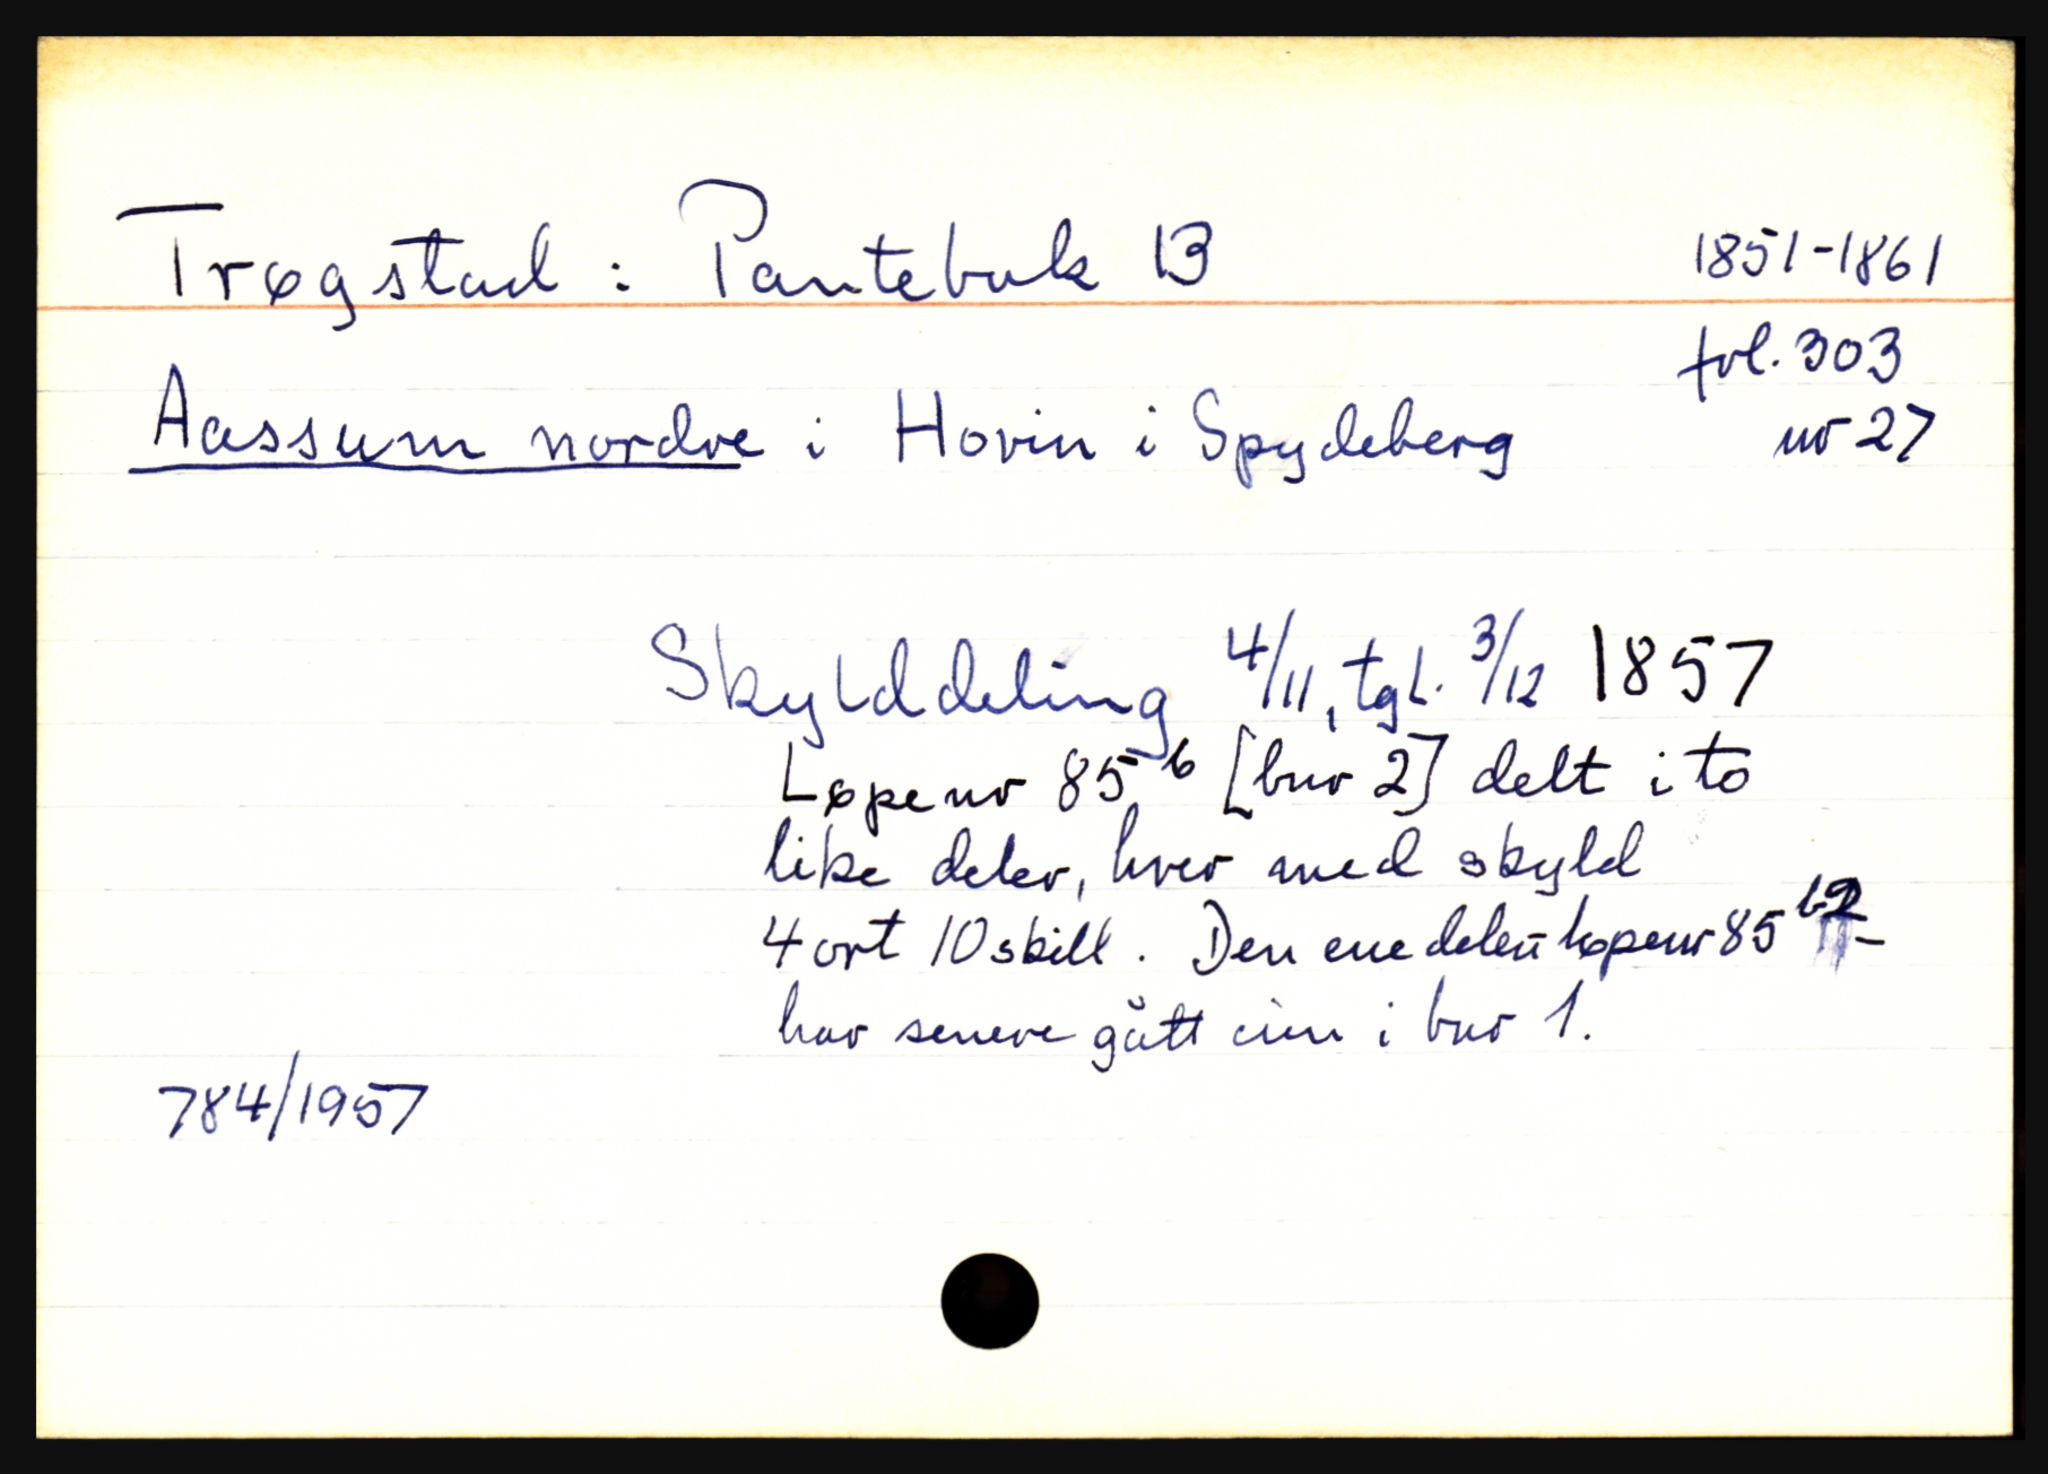 Trøgstad : Pantebok 13 1851-1861
fol. 303
Aassum nordre i Hovin i Spydeberg nr 27
Skylddeling 4/11, tgl. 3/12 1857
Løpenr 85 b [bnr 2] delt i to
like deler, hver med skyld
4 ort 10 skill. Den ene delen løpenr 85 b2 -
har senere gått inn i bnr 1.
784/1957